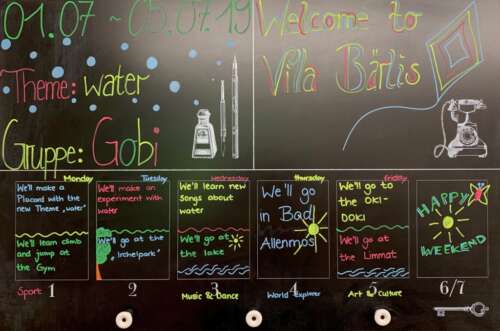 01.07 ~ 05.07.19
Theme: water
Gruppe: Gobi
Welcome to
Villa Bärlis
Monday
We'll make a
Placard with the
new Theme „water"
We'll learn climb
and jump at
the Gym
Sport 1
Tuesday
We'll make an
experiment with
water
We'll go at the
„Irchelpark"
2
wednesday
We'll learn new
songs about
water
We'll go at
the lake
3
Music & Dance
thursday
We'll go
in Bad
Allenmos
4
World Explorer
friday
We'll go to
the OKI-
DOKI
We'll go at
the Limmat
5
Art & culture
HAPPY
WEEKEND
6/7